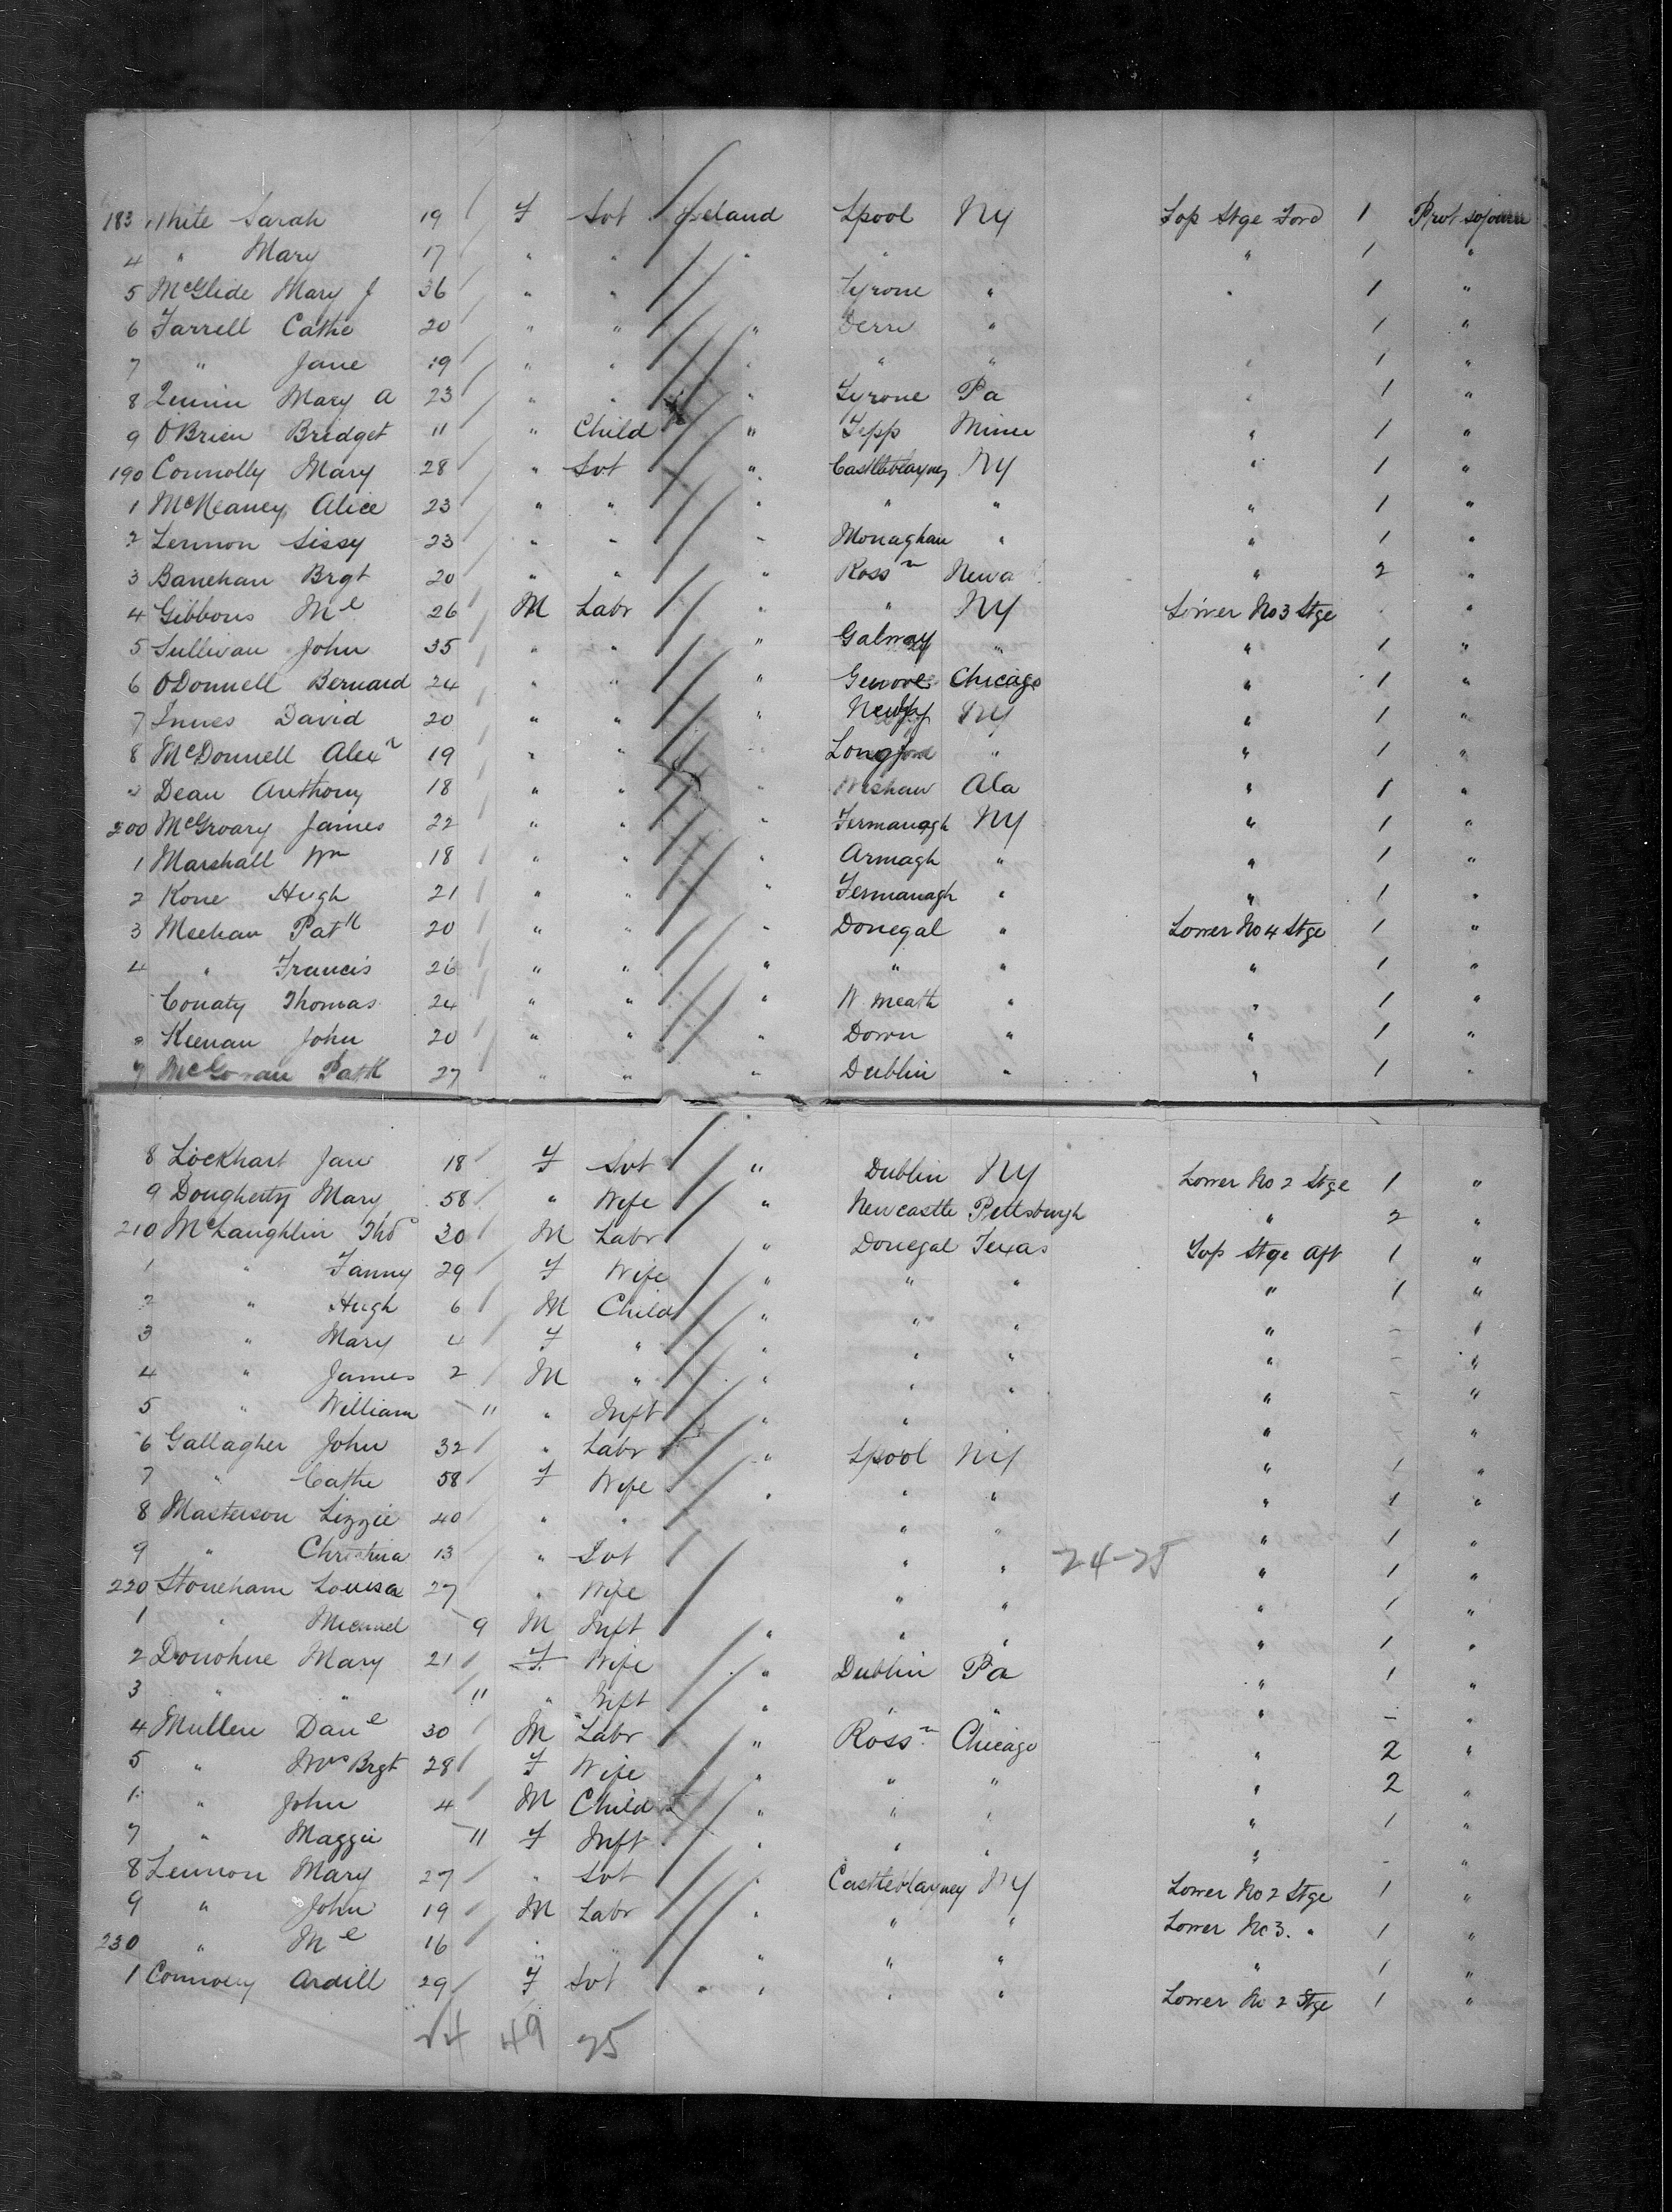 183 White Sarah 19 F Svt Ireland Lpool NY Top Stge Ford 1 Prot sojourn
4 " Mary 17 " " " " " 1 "
5 McGlide Mary J 36 " " Tyrone " " 1 "
6 Farrell Cathe 20 " " " Derry " 1 "
7 " Jane 19 " " " " " 1 "
8 Quinn Mary A 23 " " " Tyrone Pa " 1 "
9 OBrien Bridget 11 " Child " Tipp Minn " 1 "
190 Connolly Mary 28 " Svt " Castleblayney NY " 1 "
1 McNeaney Alice 23 " " " " " " 1 "
2 Lennon Sissy 23 " " " Monaghan " " 1 "
3 Banehan Brgt 20 " " " Ross n Newa " 2 "
4 Gibbons Ml 26 M Labr " " NY Lower No 3 Stge "
5 Sullivan John 35 " " " Galway " " 1 "
6 ODonnell Bernard 24 " " " Chicago " 1 "
7 Innes David 20 " " " NY " 1 "
8 McDonnell Alexr 19 " " " Longford " " 1 "
Dean Anthony 18 " " " Wishaw Ala " 1 "
200 McGroary James 22 " " " Fermanagh NY " 1 "
1 Marshall Wm 18 " " " Armagh " " 1 "
2 Kone Hugh 21 " " " Fermanagh " " 1 "
3 Meehan Patk 20 " " " Donegal " Lower No 4 Stge 1 "
4 " Francis 26 " " " " " " 1 "
Conaty Thomas 24 " " " W. Meath " " 1 "
Keenan John 20 " " " Down " " 1 "
7 Patk 27 " " " Dublin " " 1 "
8 Lockhart Jane 18 F Svt " Dublin NY Lower No 2 Stge 1 "
9 Dougherty Mary 58 " Wife " Newcastle Pittsburgh " 2 "
210 McLaughlin Thos 30 M Labr " Donegal Texas Top Stge Aft 1 "
1 " Fanny 29 F Wife " " " " 1 "
2 " Hugh 6 M Child " " " " - "
3 " Mary 4 F " " " " " - "
4 " James 2 M " " " " " - "
5 " William - 11 " Inft " " " - "
6 Gallagher John 32 " Labr " Lpool NY " 1 "
7 " Cathe 58 F Wife " " " " 1 "
8 Masterson Lizzie 40 " " " " " 1 "
9 " Christina 13 " Svt " " 24-25 " 1 "
220 Stoneham Louisa 27 " Wife " " " 1 "
1 " Michael - 9 M Inft " " " " 1 "
2 Donohue Mary 21 F Wife " Dublin Pa " 1 "
3 " " 11 " Inft " " " " - "
4 Mullen Danl 30 M Labr " Ross n Chicago " 2 "
5 " Mrs Brgt 28 F Wife " " " " 2 "
" John 4 M Child " " " " 1 "
7 " Maggie - 11 F Inft " " " " - "
8 Lennon Mary 27 " Svt " Castleblayney NY Lower No 2 Stge 1 "
9 " John 19 M Labr " " " Lower No 3. " 1 "
230 " Ml 16 " " " " " " 1 "
1 Connolly Ardill 29 F Svt " " " Lower No 2 Stge 1 "
24 49 25